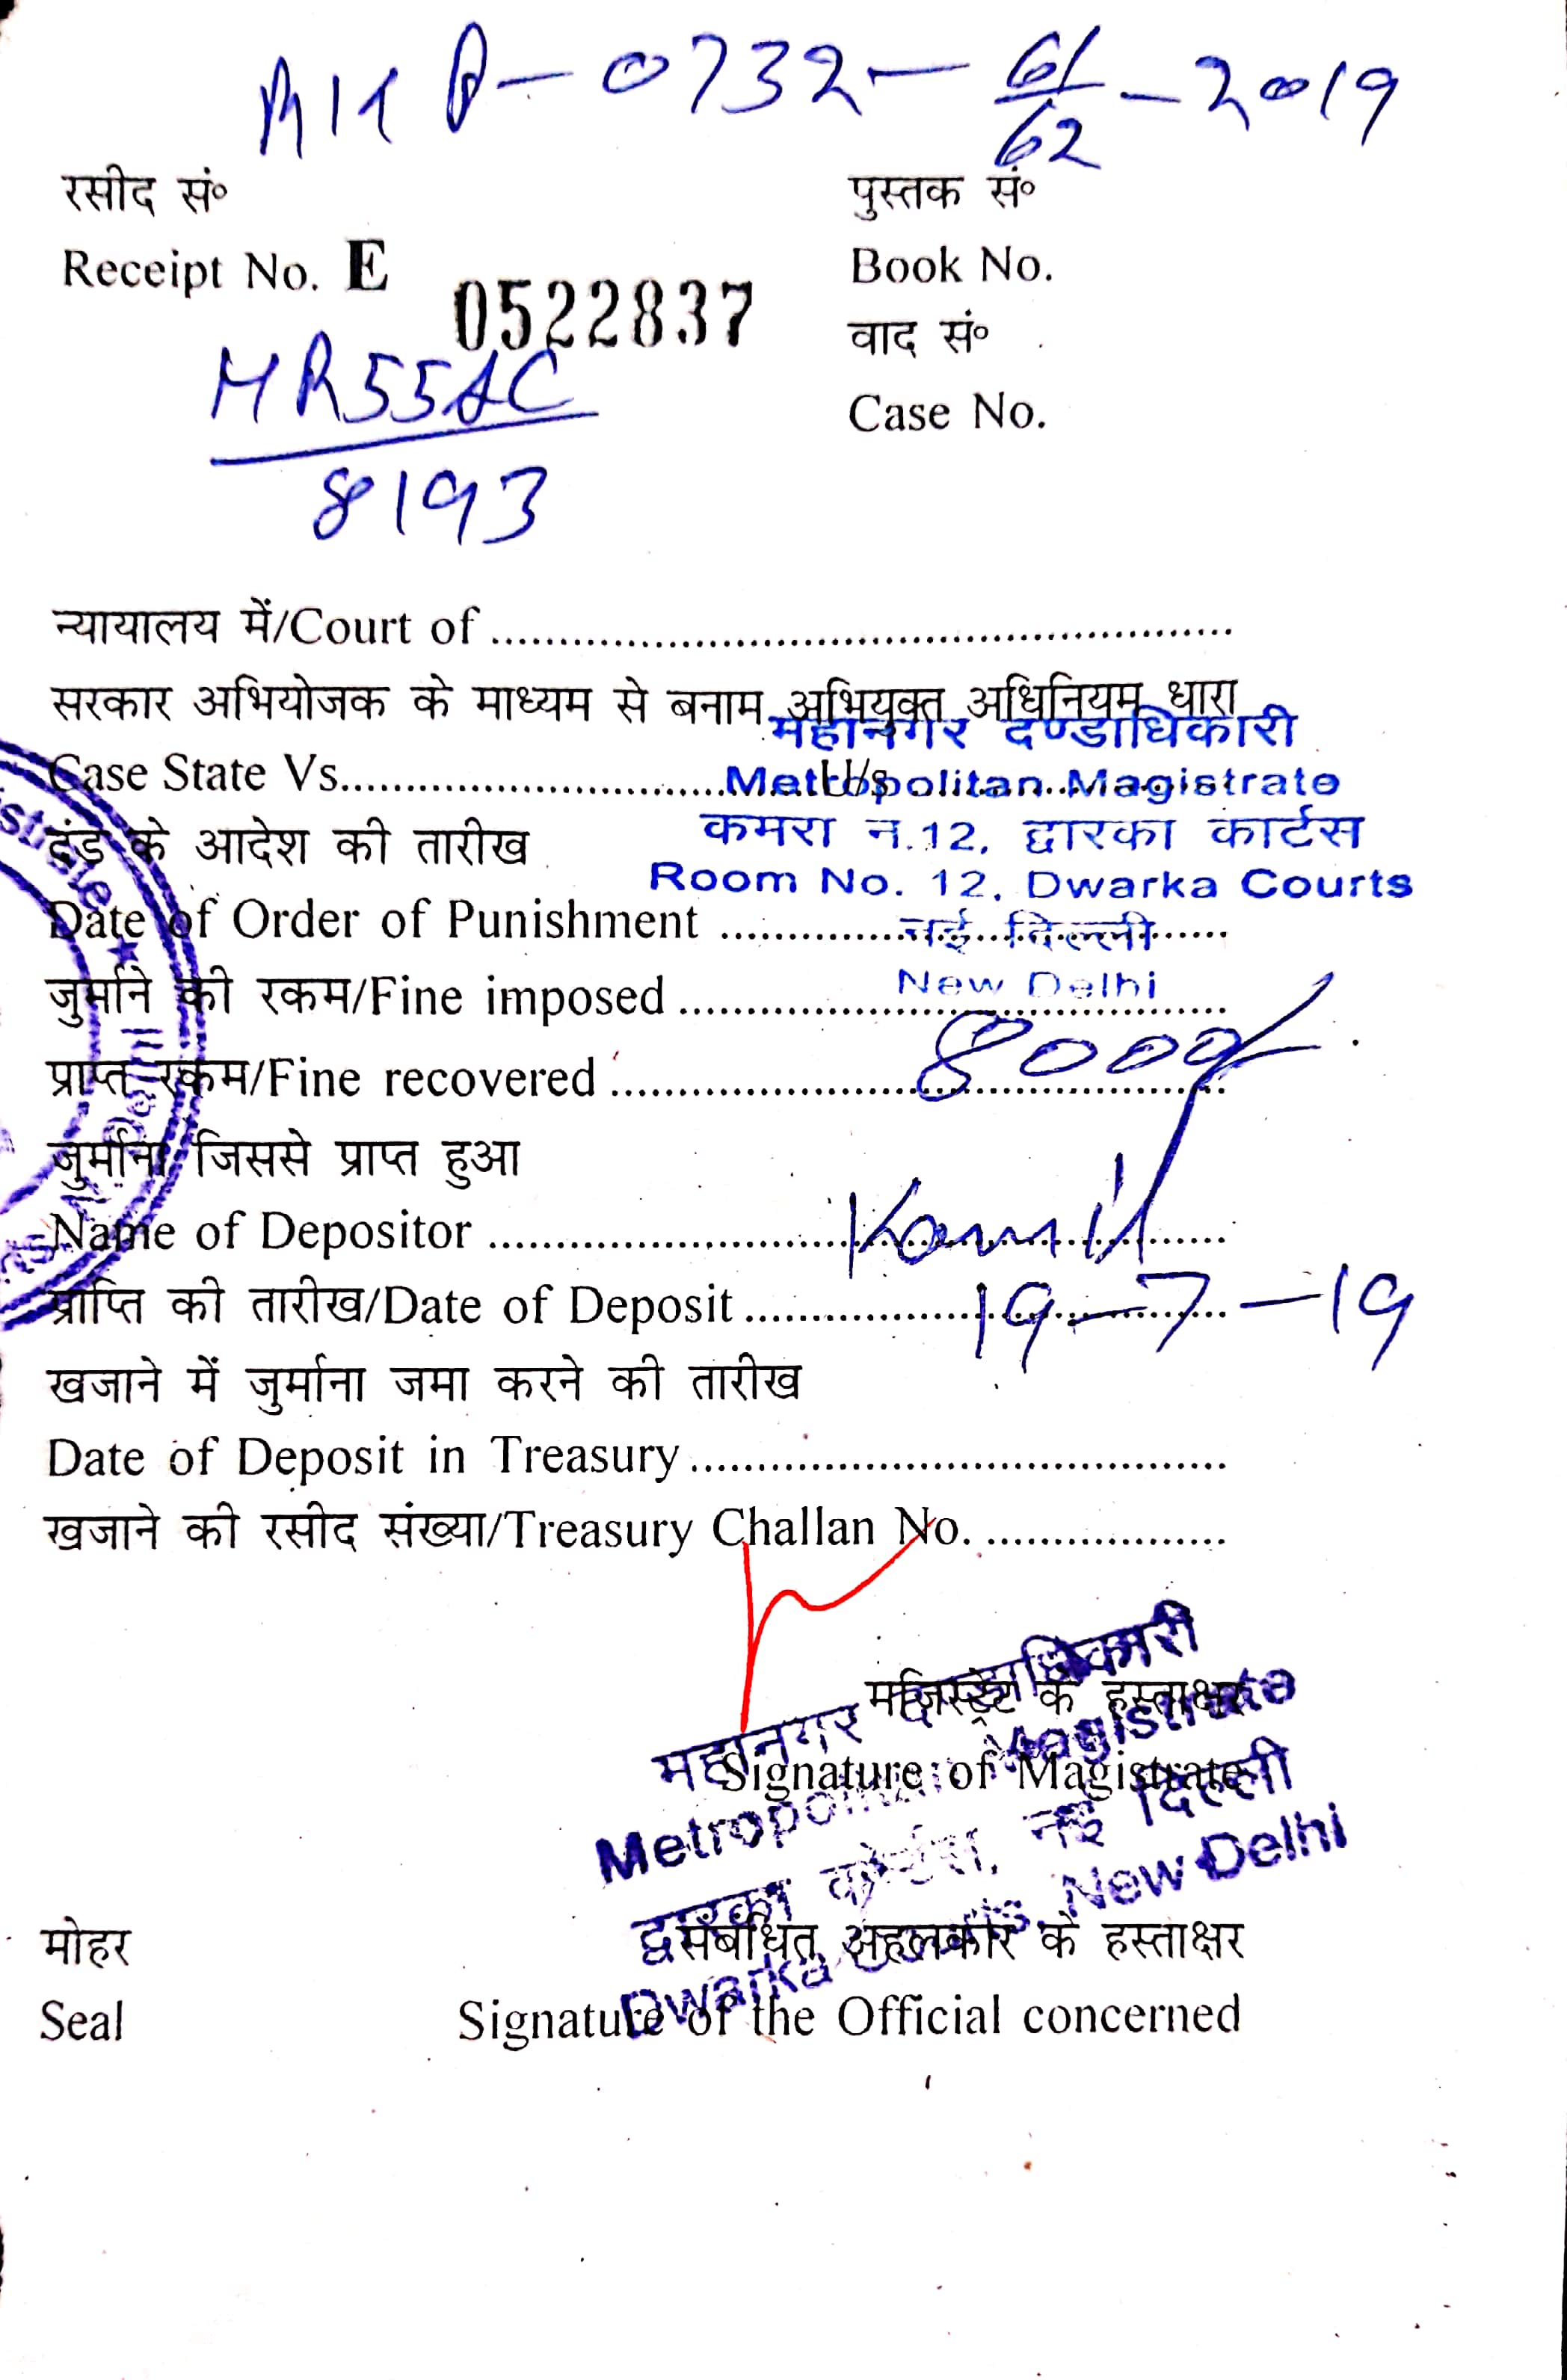 P-0732-61/62-2019
रसीद सं० पुस्तक सं०
Receipt No. E 0522837 Book No.
वाद सं०
HR55AC Case No.
8193
न्यायालय में/Court of ........................................................
सरकार अभियोजक के माध्यम से बनाम अभियुक्त अधिनियम धारा
महानगर दण्डाधिकारी
Case State Vs.................................... U/s ............
Metropolitan Magistrate
दंड के आदेश की तारीख
कमरा न.12, द्वारका कार्टस
Room No. 12, Dwarka Courts
Date of Order of Punishment ......................................
नई दिल्ली
New Delhi
जुर्माने की रकम/Fine imposed .........................................
प्राप्त रकम/Fine recovered .............................................. 8000/-
जुर्माना जिससे प्राप्त हुआ
Name of Depositor ....................................................... Kamil
प्राप्ति की तारीख/Date of Deposit .................................... 19-7-19
खजाने में जुर्माना जमा करने की तारीख
Date of Deposit in Treasury........................................
खजाने की रसीद संख्या/Treasury Challan No. ..................
महानगर दण्डाधिकारी
मजिस्ट्रेट के हस्ताक्षर
Metropolitan Magistrate
Signature of Magistrate
द्वारका कोर्टस, नई दिल्ली
Dwarka Courts, New Delhi
मोहर संबंधित अहलकार के हस्ताक्षर
Seal Signature of the Official concerned